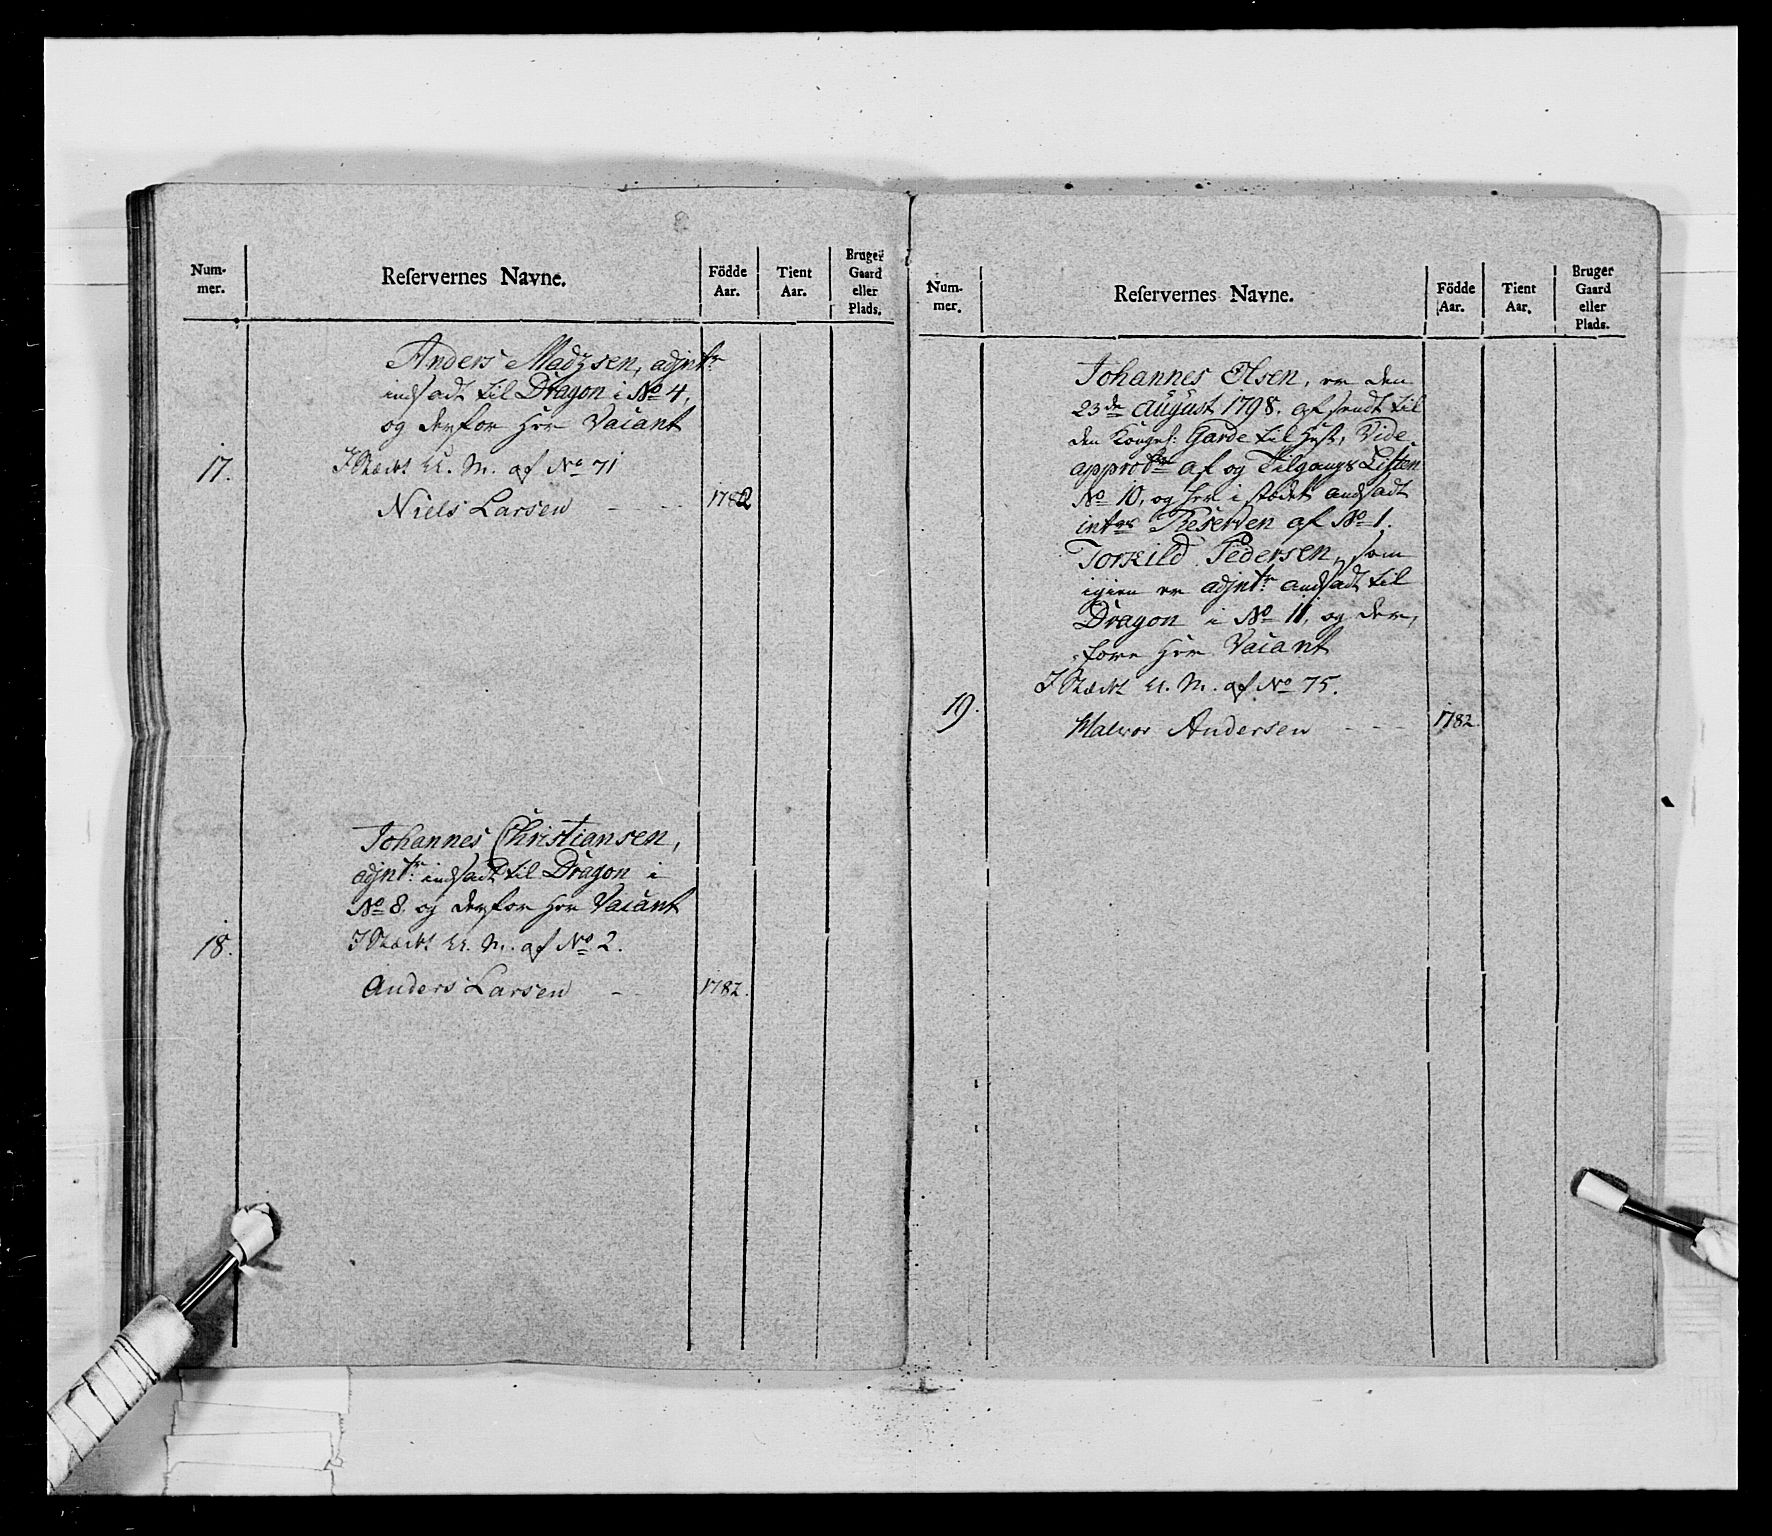 Num-
mer.
Reservernes Navne.
Födde
Aar.
Tient
Aar.
Bruger
Gaard
eller
Plads.
Anders Madzsen, adjntr:
indsadt til Dragon i No 4,
og derfor her Vacant
17.
I Stædet U. M. af No 71
Niels Larsen 1782
Johannes Christiansen,
adjntr: indsadt til Dragon i
No 8. og derfor her Vacant
18.
I Stædet U. M. af No 2.
Anders Larsen 1782.
Num-
mer.
Reservernes Navne.
Födde
Aar.
Tient
Aar.
Bruger
Gaard
eller
Plads.
Johannes Olsen, er den
23de August 1798. afsendt til
den Kongel: Garde til Hest, Vide
af og Tilgangs Listen
No 10, og her i stædet andsadt
Reserven af No 1.
Torkild Pedersen, som
igien er adjntr: andsadt til
Dragon i No 11, og der,
fore her Vacant
I Stædet U. M. af No 75.
19.
Halvor Andersen 1782.